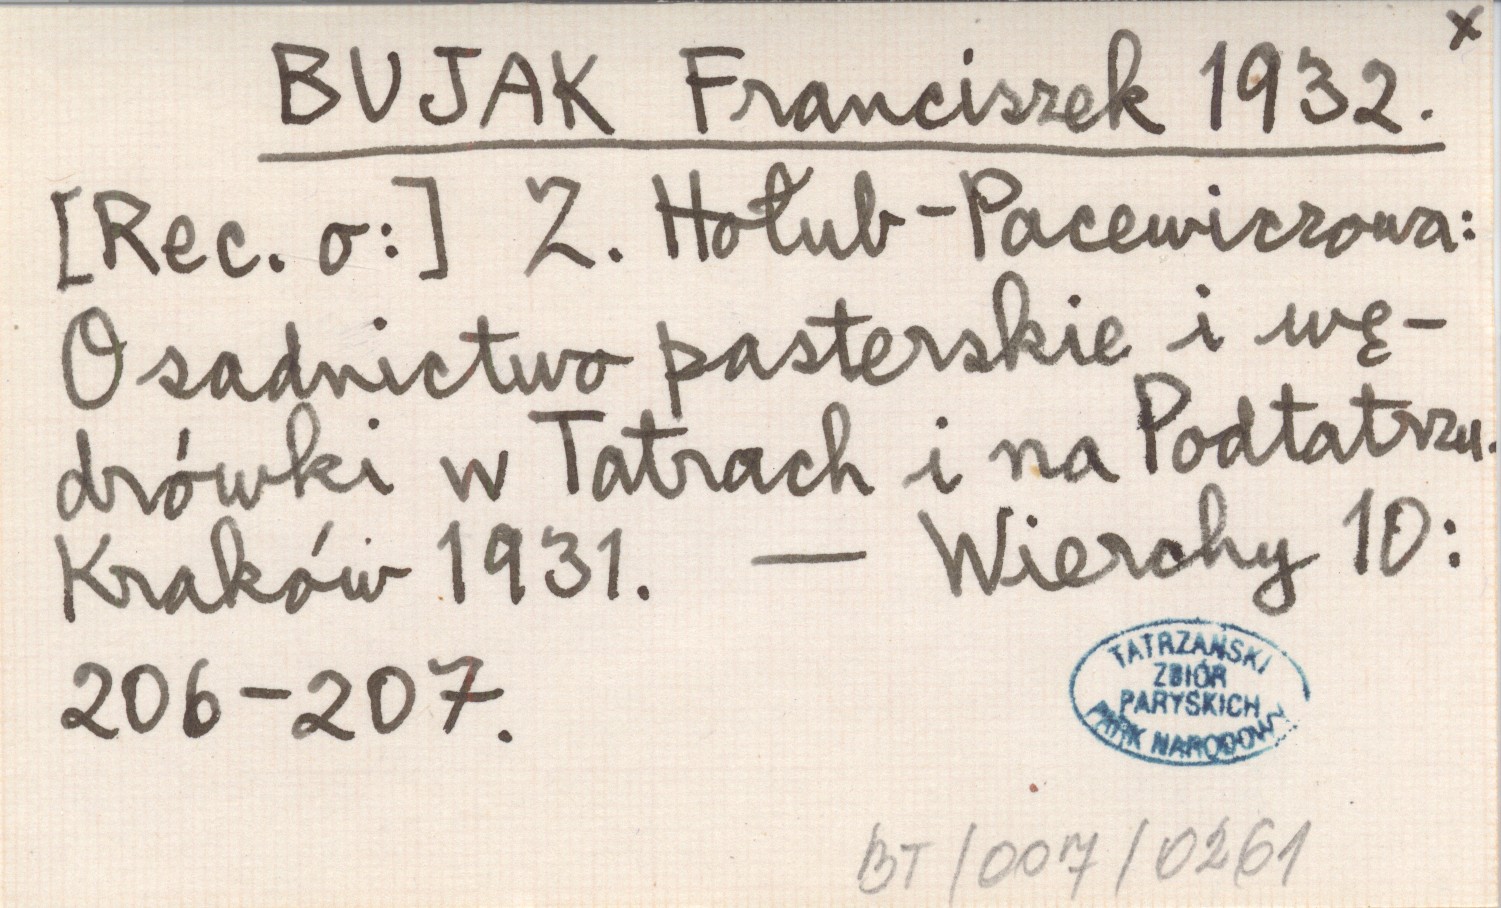 x
BUJAK Franciszek 1932.
[Rec. o:] Z. Hołub-Pacewiczowa:
Osadnictwo pasterskie i wę-
drówki w Tatrach i na Podtatrzu.
Kraków 1931. — Wierchy 10:
206-207.
TATRZAŃSKI
ZBIÓR
PARYSKICH
PARK NARODOWY
BT/007/0261